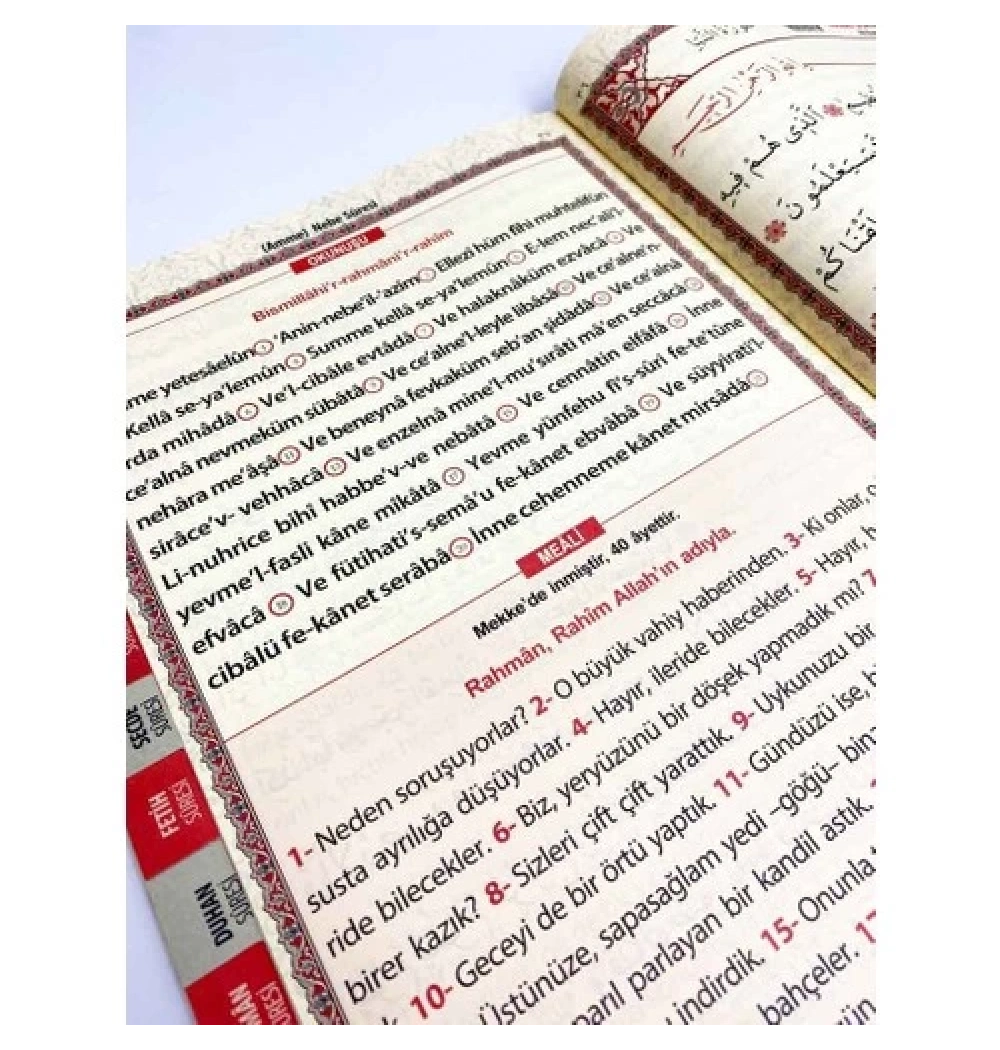 (Amme) Nebe Sûresi
OKUNUŞU
Bismillâhi'r-rahmâni'r-rahîm
me yetesâelûn 1 'Anin-nebe'il-'azîm 2 Ellezî hüm fîhi muhtelifûn
Kellâ se-ya'lemûn 4 Summe kellâ se-ya'lemûn 5 E-lem nec'ali'l-
rda mihâdâ 6 Ve'l-cibâle evtâdâ 7 Ve halaknâküm ezvâcâ 8 Ve
ce'alnâ nevmeküm sübâtâ 9 Ve ce'alne'l-leyle libâsâ 10 Ve ce'alne'n-
nehâra me'âşâ 11 Ve beneynâ fevkaküm seb'an şidâdâ 12 Ve ce'alnâ
sirâce'v- vehhâcâ 13 Ve enzelnâ mine'l-mu'sırâti mâ'en seccâcâ 14
Li-nuhrice bihî habbe'v-ve nebâtâ 15 Ve cennâtin elfâfâ 16 İnne
yevme'l-fasli kâne mîkâtâ 17 Yevme yünfehu fî's-sûri fe-te'tûne
efvâcâ 18 Ve fütihati's-semâ'u fe-kânet ebvâbâ 19 Ve süyyirati'l-
cibâlü fe-kânet serâbâ 20 İnne cehenneme kânet mirsâdâ 21
MEÂLİ
Mekke'de inmiştir, 40 âyettir.
Rahmân, Rahîm Allah'ın adıyla.
1- Neden soruşuyorlar? 2- O büyük vahiy haberinden. 3- Ki onlar,
susta ayrılığa düşüyorlar. 4- Hayır, ileride bilecekler. 5- Hayır,
ride bilecekler. 6- Biz, yeryüzünü bir döşek yapmadık mı? 7
birer kazık? 8- Sizleri çift çift yarattık. 9- Uykunuzu bir
10- Geceyi de bir örtü yaptık. 11- Gündüzü ise,
Üstünüze, sapasağlam yedi –göğü– bina
parıl parlayan bir kandil astık.
indirdik. 15- Onunla
bahçeler. 17
SECDE
SÛRESİ
FETİH
SÛRESİ
DUHAN
SÛRESİ
SÛRESİ
الَّذِي هُمْ فِيهِ